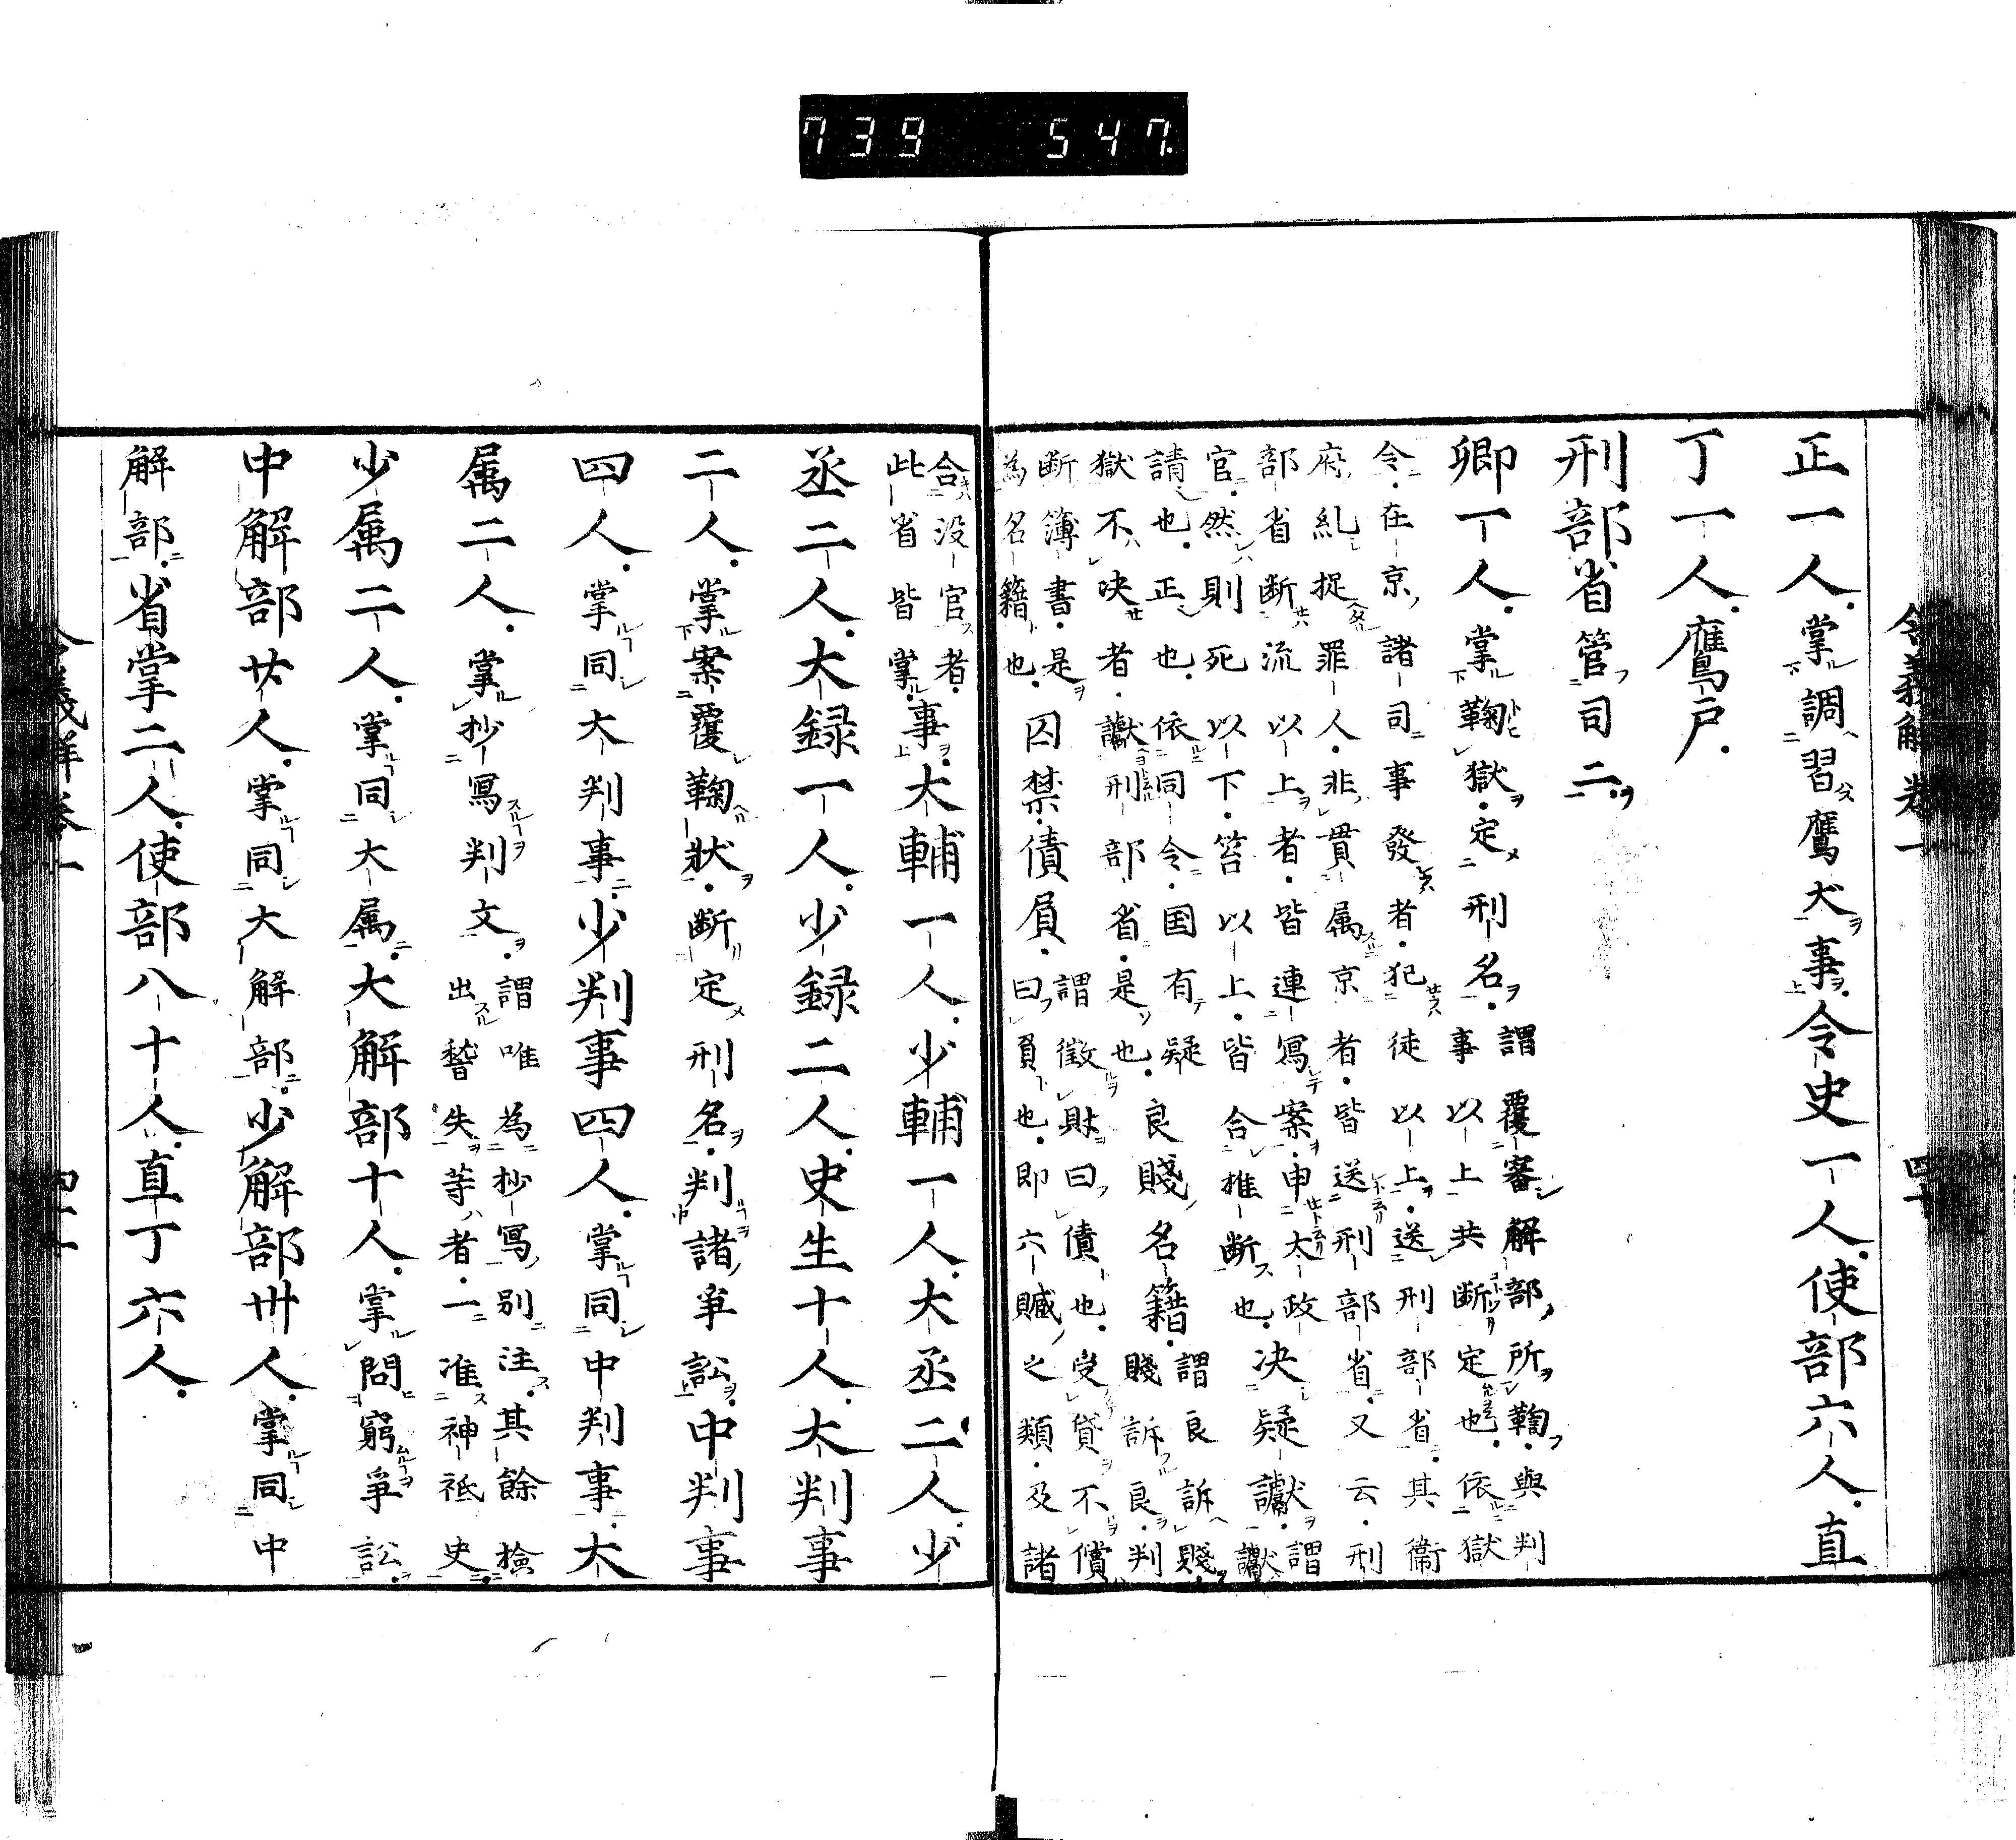 739 547
正一人掌調習鷹犬事令史一人使部六人直
丁一人鷹戸
刑部省管司二
卿一人掌鞫獄定刑名謂覆審解部所鞫與判
事以上共断定也依獄
令在京諸司事發者犯徒以上送刑部省其衛
府糺捉罪人非貫属京者皆送刑部省又云刑
部省断流以上者皆連寫案申太政
官然則死以下笞以上皆合推断也決疑讞謂讞
請也正也依同令国有疑
獄不決者讞刑部省是也良賤名籍謂良訴賤
賤訴良判
断簿書是
為名籍也囚禁債負謂徴財曰債也受貸不償
曰負也即六贓之類及諸
合没官者
此省皆掌事大輔一人少輔一人大丞二人少
丞二人大録一人少録二人史生十人大判事
二人掌案覆鞫状断定刑名判諸争訟中判事
四人掌同大判事少判事四人掌同中判事大
属二人掌抄寫判文謂唯為抄寫別注其餘撿
出稽失等者一准神祗史
少属二人掌同大属大解部十人掌問窮争訟
中解部廿人掌同大解部少解部卅人掌同中
解部省掌二人使部八十人直丁六人